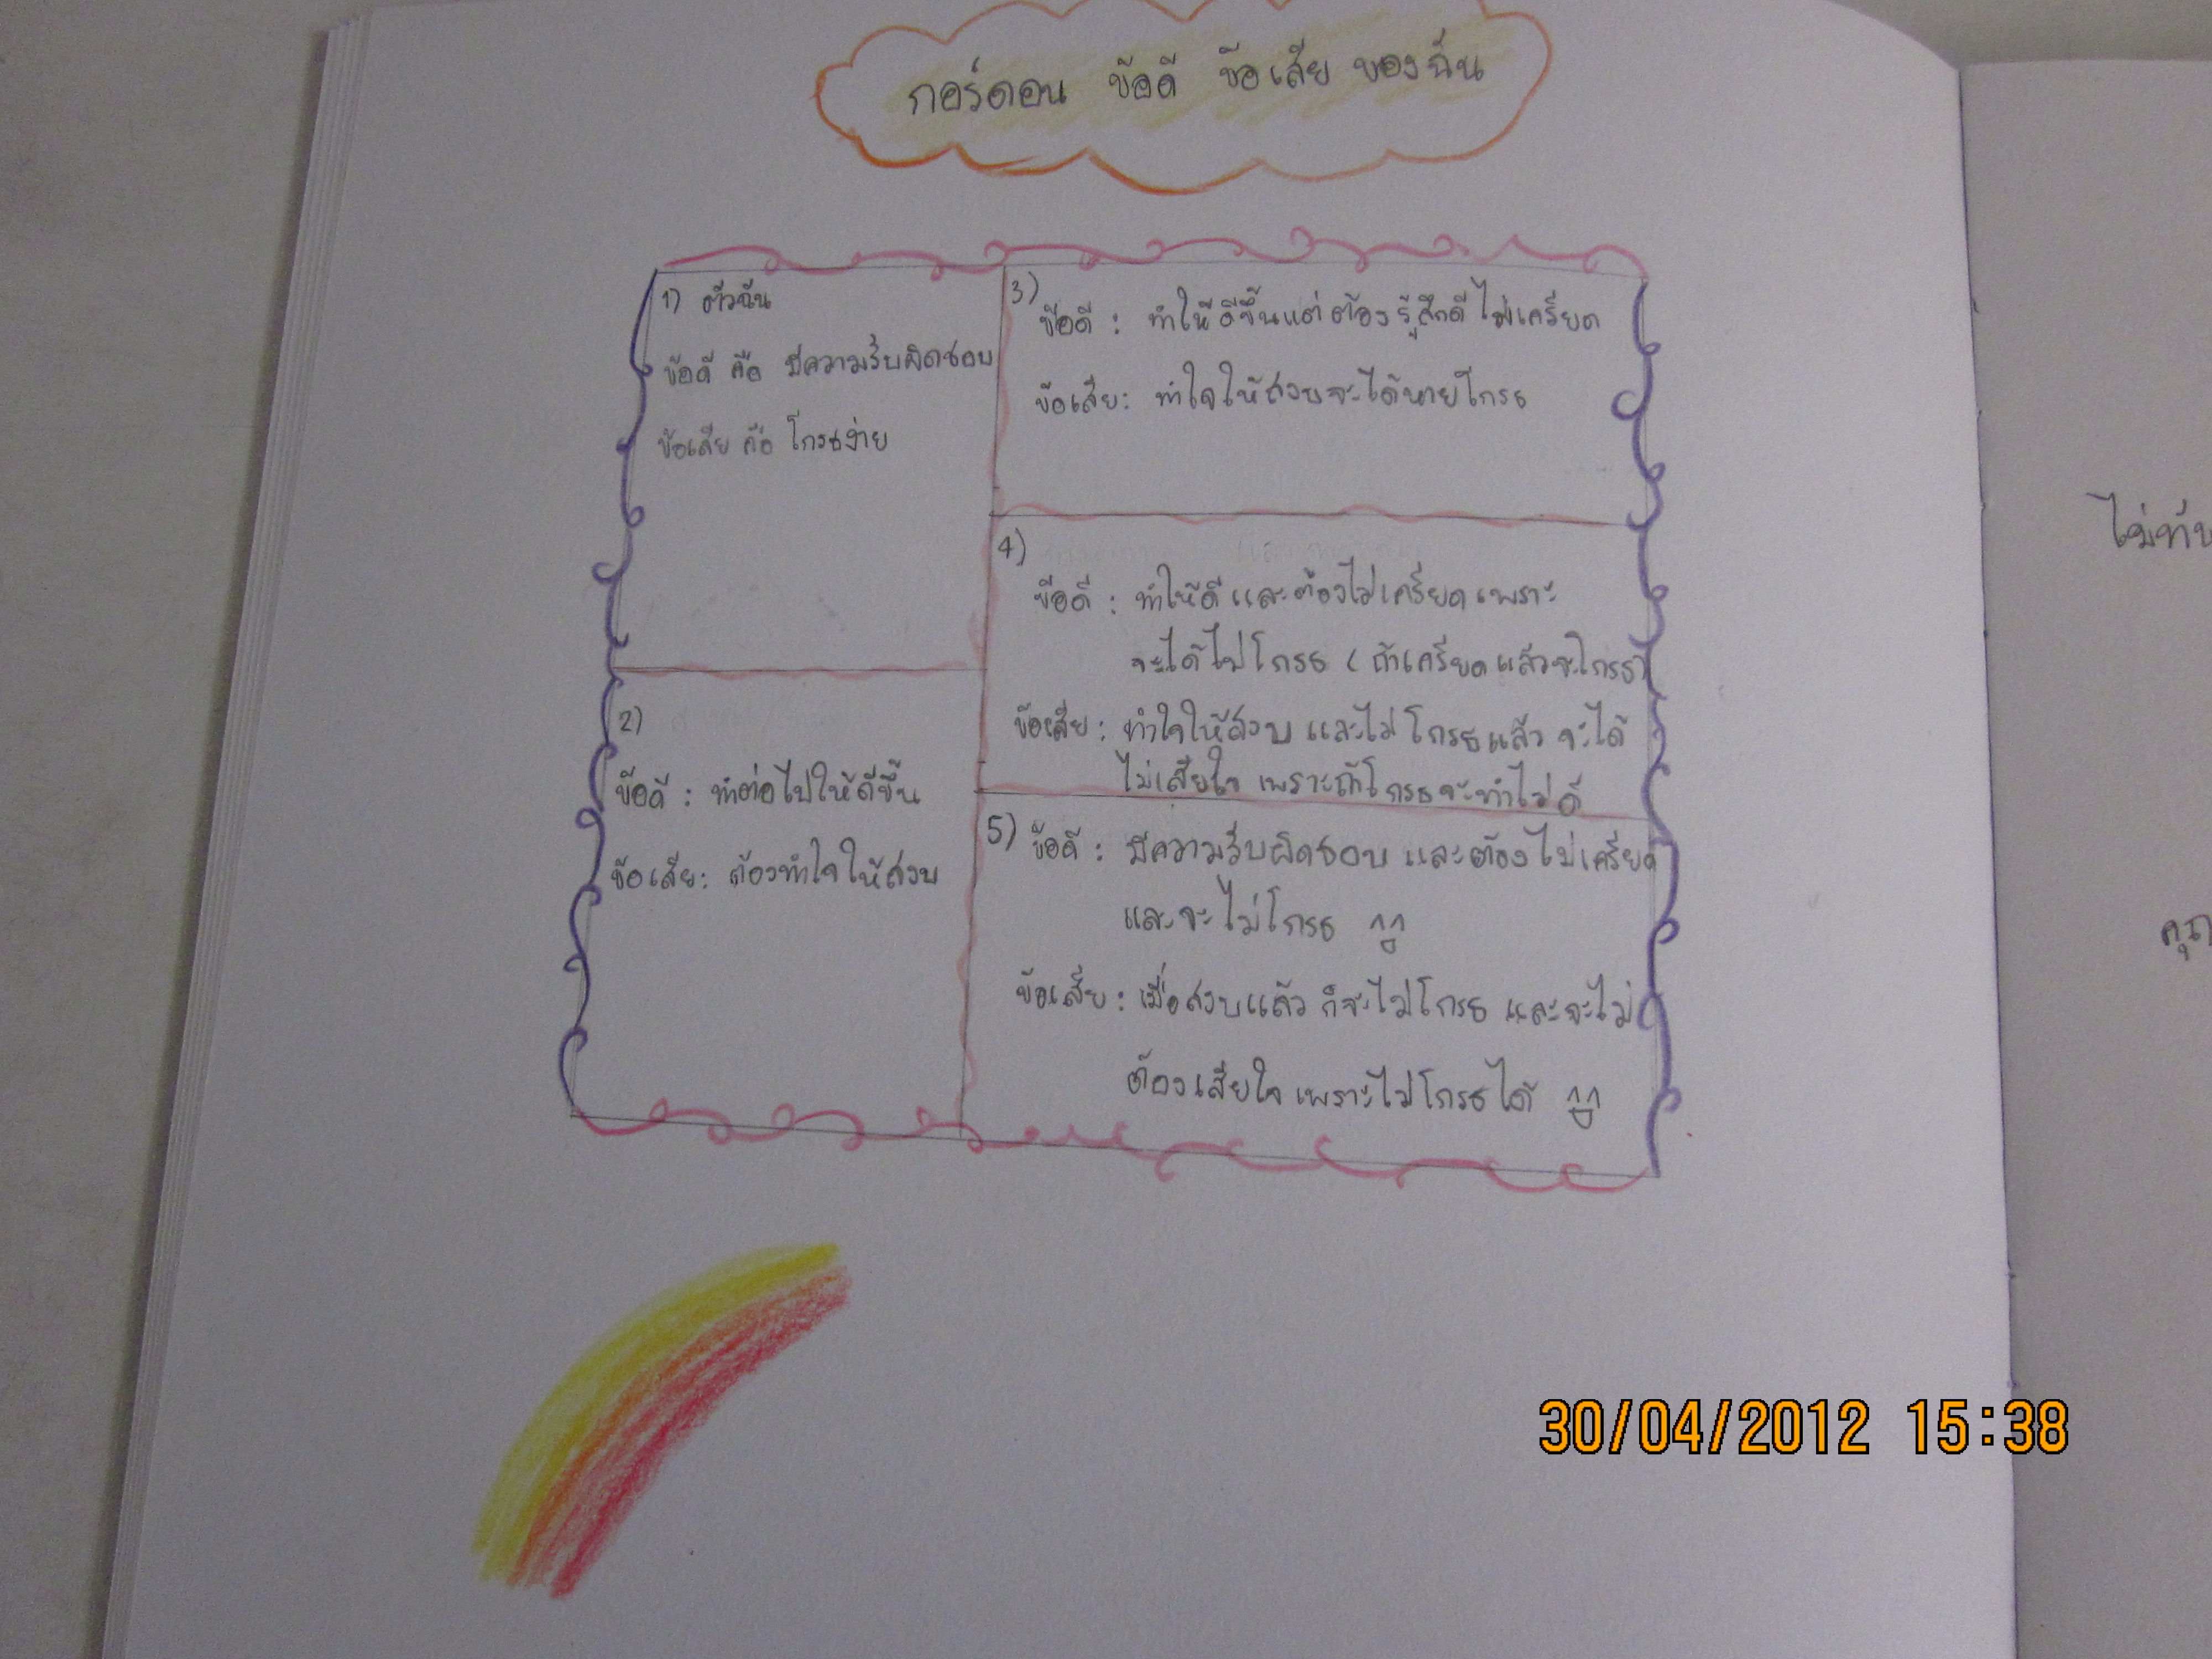 กอร์ดอน ข้อดี ข้อเสีย ของฉัน
1) ตัวฉัน
ข้อดี คือ มีความรับผิดชอบ
ข้อเสีย คือ โกรธง่าย
2)
ข้อดี : ทำต่อไปให้ดีขึ้น
ข้อเสีย : ต้องทำใจให้สงบ
3)
ข้อดี : ทำให้ดีขึ้นแต่ต้องรู้สึกดี ไม่เครียด
ข้อเสีย : ทำใจให้สงบจะได้หายโกรธ
4)
ข้อดี : ทำให้ดี และต้องไม่เครียด เพราะ
จะได้ไม่โกรธ ( ถ้าเครียด แล้วจะโกรธ)
ข้อเสีย : ทำใจให้สงบ และไม่โกรธแล้ว จะได้
ไม่เสียใจ เพราะถ้าโกรธจะทำไม่ดี
5) ข้อดี : มีความรับผิดชอบ และต้องไม่เครียด
และจะไม่โกรธ ^^
ข้อเสีย : เมื่อสงบแล้ว ก็จะไม่โกรธ และจะไม่
ต้องเสียใจ เพราะไม่โกรธได้ ^^
30/04/2012 15:38